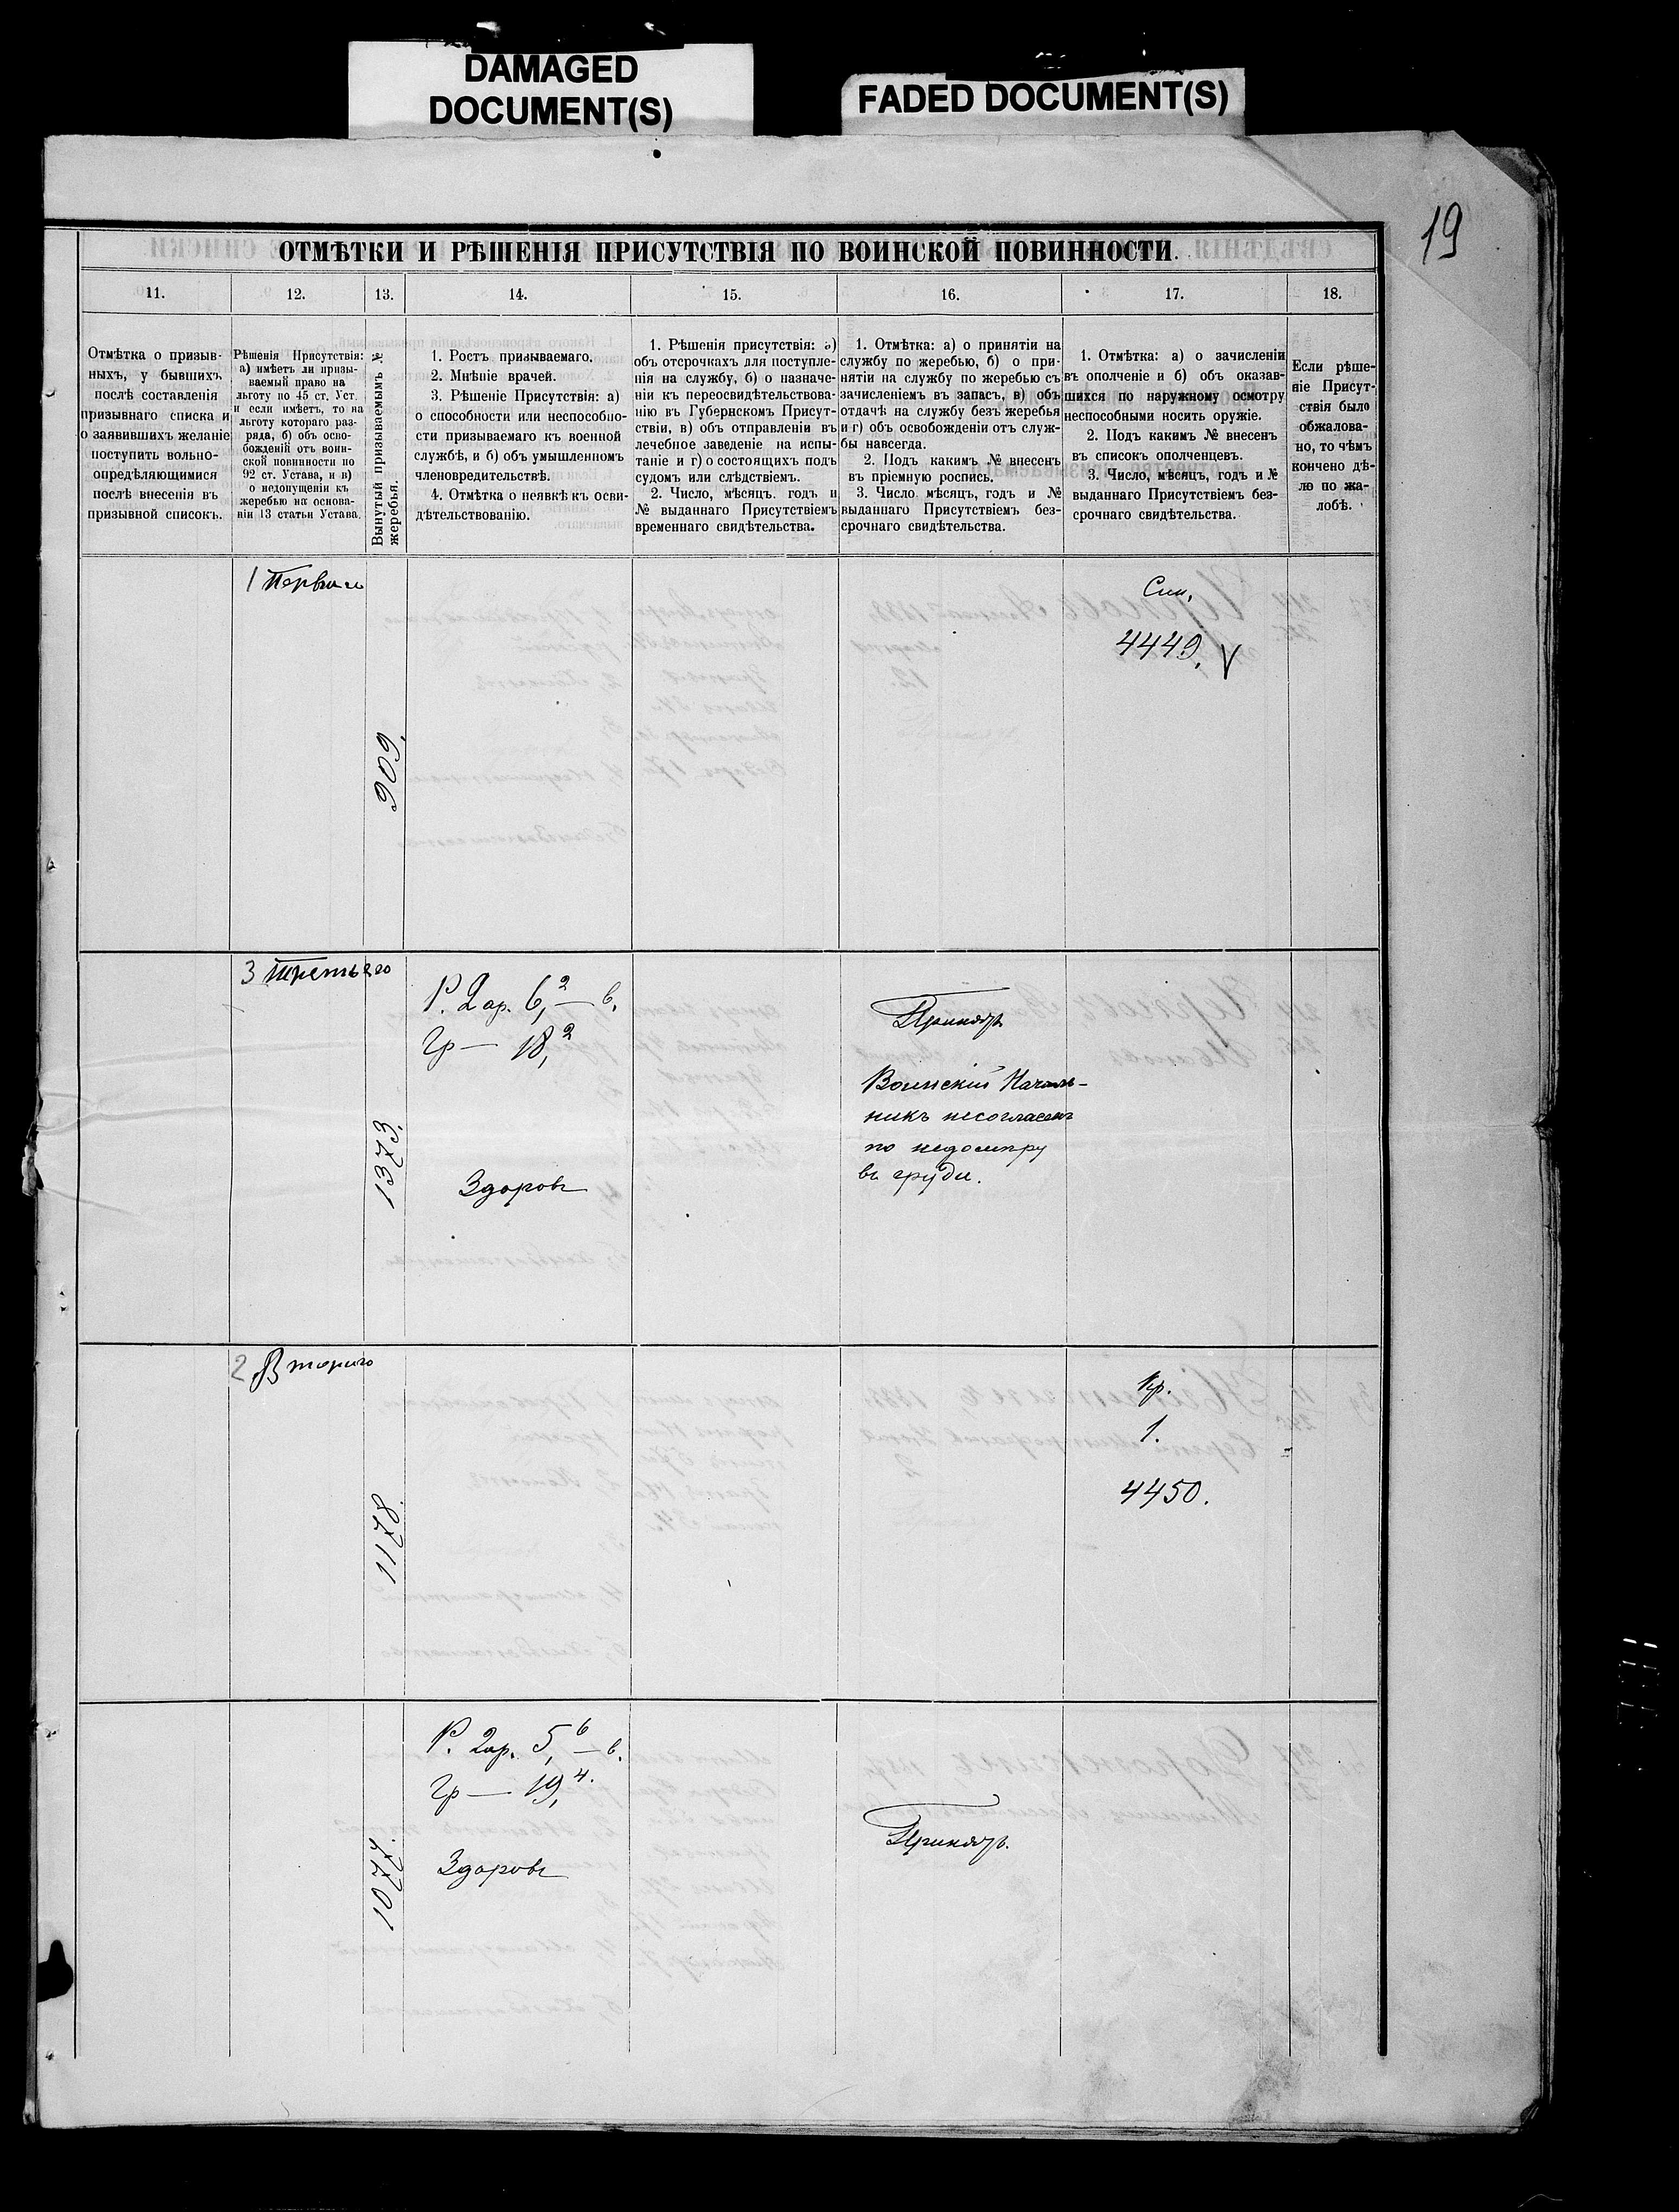 DAMAGED
DOCUMENT(S)
FADED DOCUMENT(S)
19
ОТМѢТКИ И РѢШЕНІЯ ПРИСУТСТВІЯ ПО ВОИНСКОЙ ПОВИННОСТИ.
11.
12.
13.
14.
15.
16.
17.
18.
Отмѣтка о призыв-
ныхъ, у бывшихъ
послѣ составленія
призывнаго списка и
о заявившихъ желаніе
поступить вольно-
опредѣляющимися
послѣ внесенія въ
призывной списокъ.
Рѣшенія Присутствія:
а) имѣетъ ли призы-
ваемый право на
льготу по 45 ст. Уст.
и если имѣетъ, то на
льготу котораго раз-
ряда, б) объ осво-
божденій отъ воин-
ской повинности по
92 ст. Устава, и в)
о недопущеніи къ
жеребью на основа-
ніи 13 статьи Устава.
Вынутый призываемымъ №
жеребья.
1. Ростъ призываемаго.
2. Мнѣніе врачей.
3. Рѣшеніе Присутствія: а)
о способности или неспособно-
сти призываемаго къ военной
службѣ, и б) объ умышленномъ
членовредительствѣ.
4. Отмѣтка о неявкѣ къ осви-
дѣтельствованію.
1. Рѣшенія присутствія: а)
объ отсрочкахъ для поступле-
нія на службу, б) о назначе-
ніи къ переосвидѣтельствова-
нію въ Губернскомъ Присут-
ствіи, в) объ отправленіи въ
лечебное заведеніе на испы-
таніе и г) о состоящихъ подъ
судомъ или слѣдствіемъ.
2. Число, мѣсяцъ. годъ и
№ выданнаго Присутствіемъ
временнаго свидѣтельства.
1. Отмѣтка: а) о принятіи на
службу по жеребью, б) о при-
нятіи на службу по жеребью съ
зачисленіемъ въ запасъ, в) объ
отдачѣ на службу безъ жеребья
и г) объ освобожденіи отъ служ-
бы навсегда.
2. Подъ какимъ № внесенъ
въ пріемную роспись.
3. Число мѣсяцъ, годъ и №
выданнаго Присутствіемъ без-
срочнаго свидѣтельства.
1. Отмѣтка: а) о зачисленіи
въ ополченіе и б) объ оказав-
шихся по наружному осмотру
неспособными носить оружіе.
2. Подъ какимъ № внесенъ
въ список ополченцевъ.
3. Число, мѣсяцъ, годъ и №
выданнаго Присутствіемъ без-
срочнаго свидѣтельства.
Если рѣше-
ніе Присут-
ствія было
обжалова-
но, то чѣмъ
кончено дѣ-
ло по жа-
лобѣ.
1 Перваго
909.
Син.
4449.
3 Третьего
1373.
Р. 2 ар. 6,2 — в.
Гр — 18,2
Здоровъ
Принятъ
Воинскій Началь-
никъ несогласенъ
по недомѣру
въ груди.
2 Второго
1178.
Кр.
1.
4450.
1077.
Р. 2 ар. 5,6 — в.
Гр — 19,4.
Здоровъ
Принятъ.